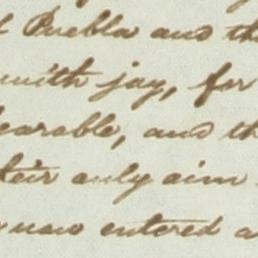 Puebla and th
with joy, for
earable, and th
their only aim
now entered a